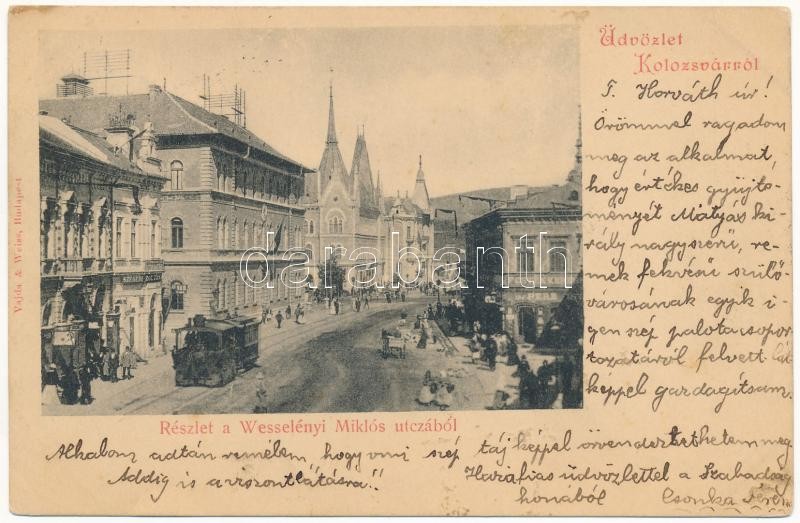 Üdvözlet
Kolozsvárról
T. Horváth úr!
Örömmel ragadom
meg az alkalmat,
hogy értékes gyüjte-
ményét Mátyás ki-
rály nagyszerü, re-
mek fekvésü szülő-
városának egyik i-
gen szép palotacsopor-
tozatáról felvett lát-
képpel gazdagítsam.
Vajda & Weisz, Budapest
darabanth
Részlet a Wesselényi Miklós utczából
Alkalom adtán remélem, hogy szép tájképpel örvendeztethetem meg.
Addig is a viszontlátásra!!
Hazafias üdvözlettel a Szabadság
honából Csonka Feren